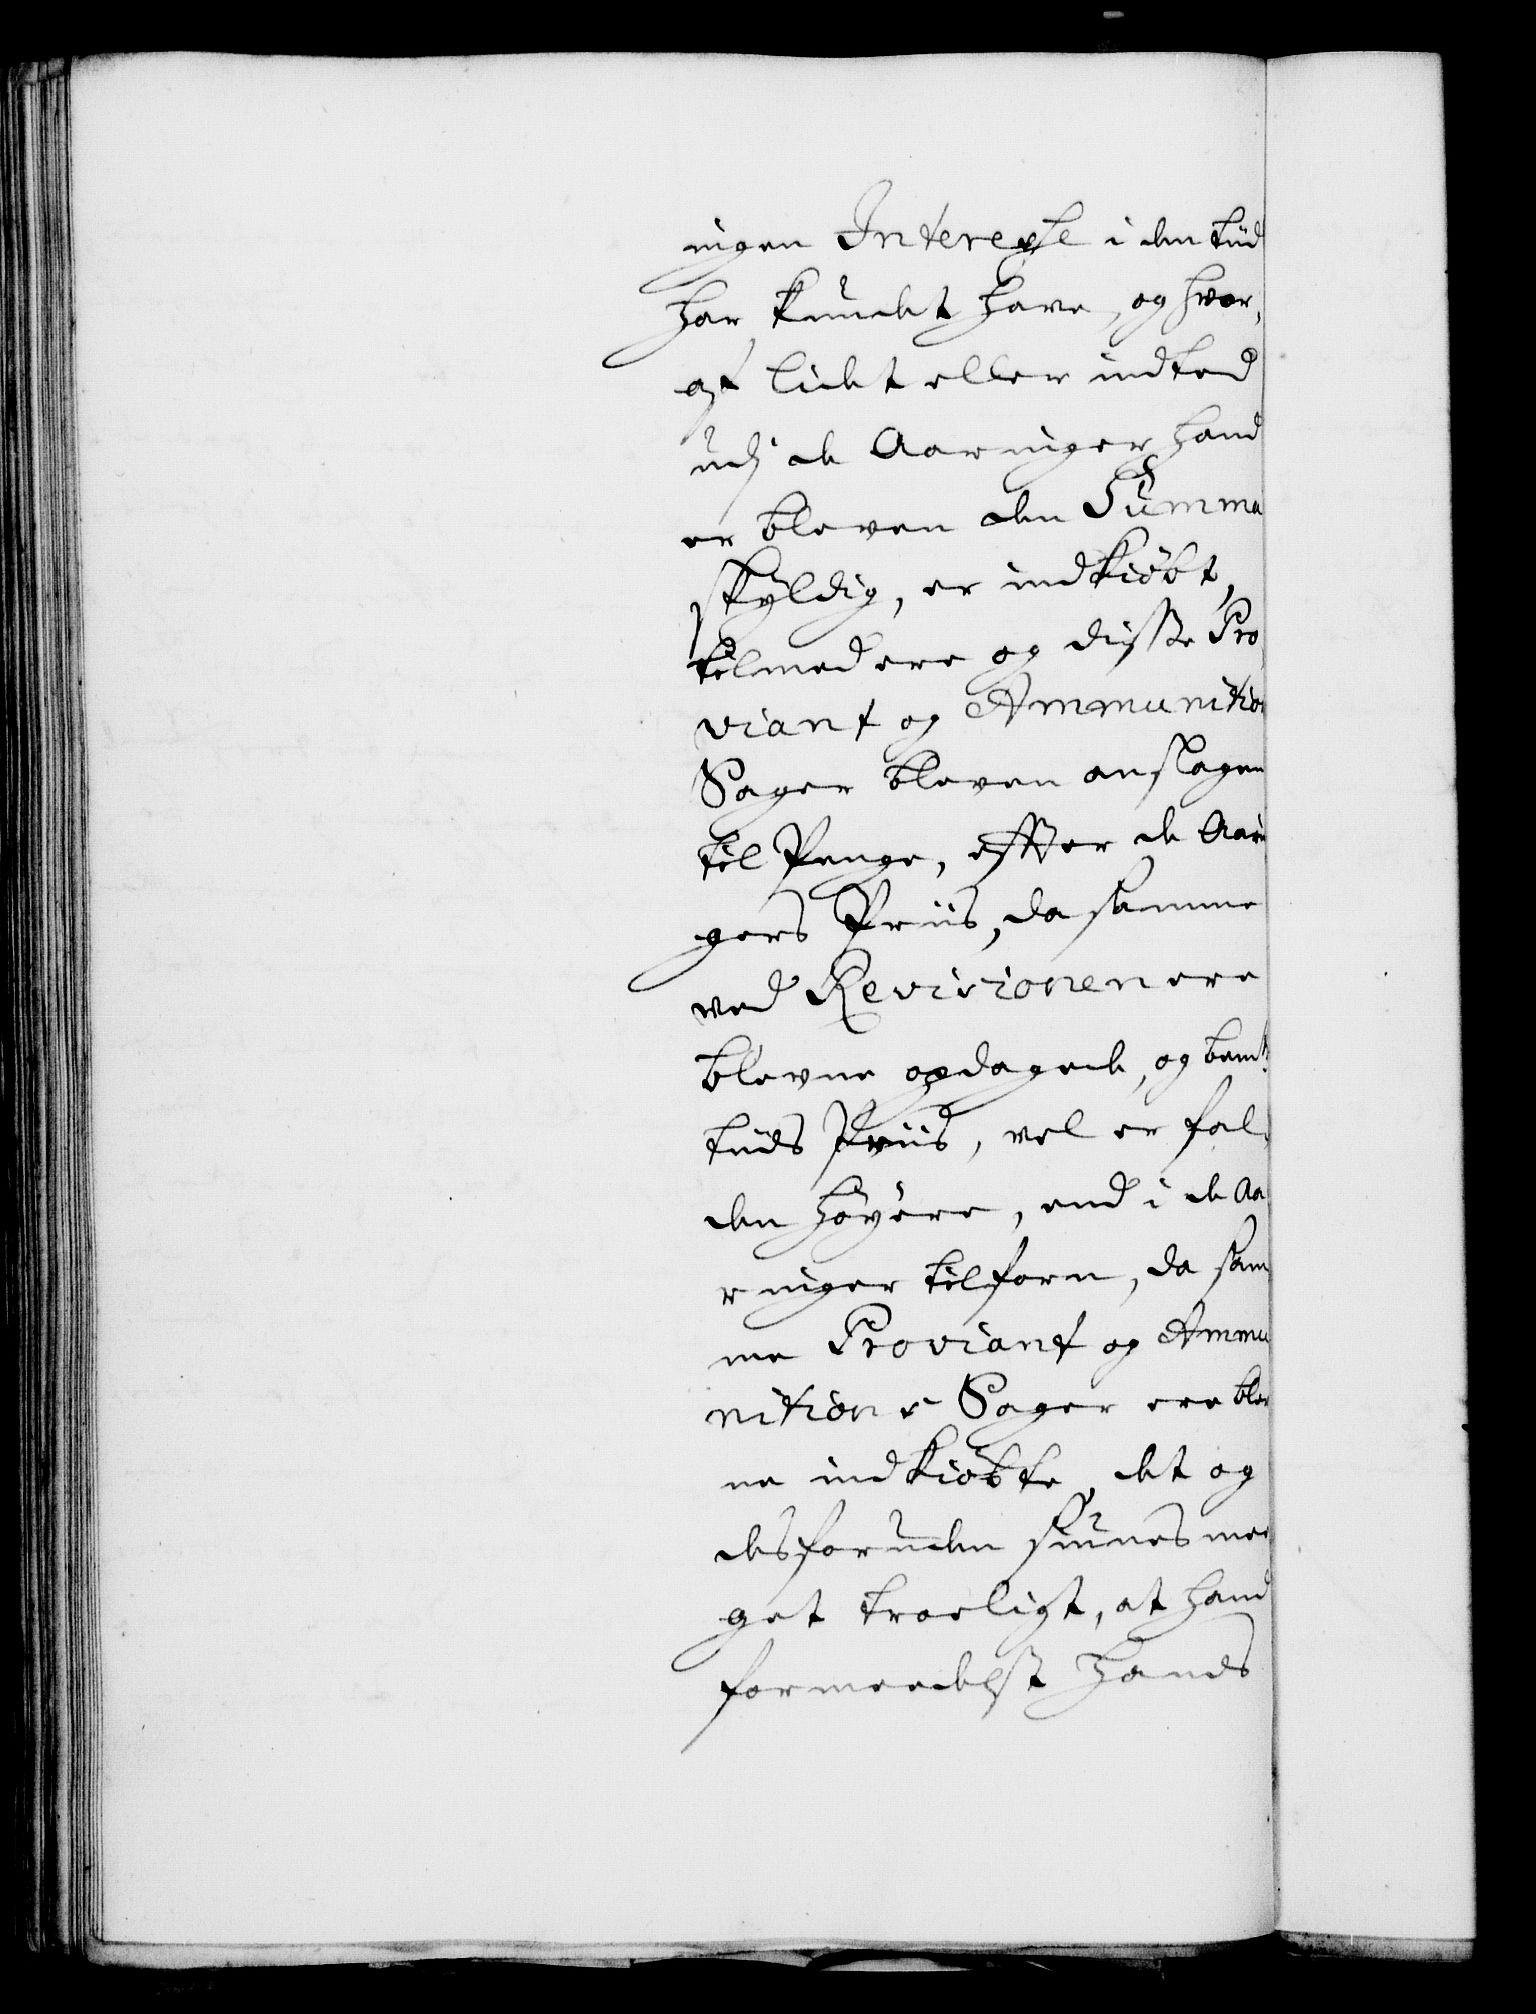 ingen Interesse i den tiid
har kundet have, og hvor,
af lidet eller indted
udj de Aaringer hand
er bleven den Summa
skyldig, er indkiöbt,
tilmed ere og disse Pro
viant og Ammunition
Sager bleven anslagen
til Penge, effter de Aarin
gers Priis, da samme
ved Revisionen ere
blevne opdagede, og bemte
tiids Priis, vel er fal,
den höyere, end i de Aa
ringer tilforn, da sam
me Proviant og Ammu
nitions Sager ere blev
ne indkiöbte, det og
desforuden siunes mee
get troeligt, at hand
formeedelst hands